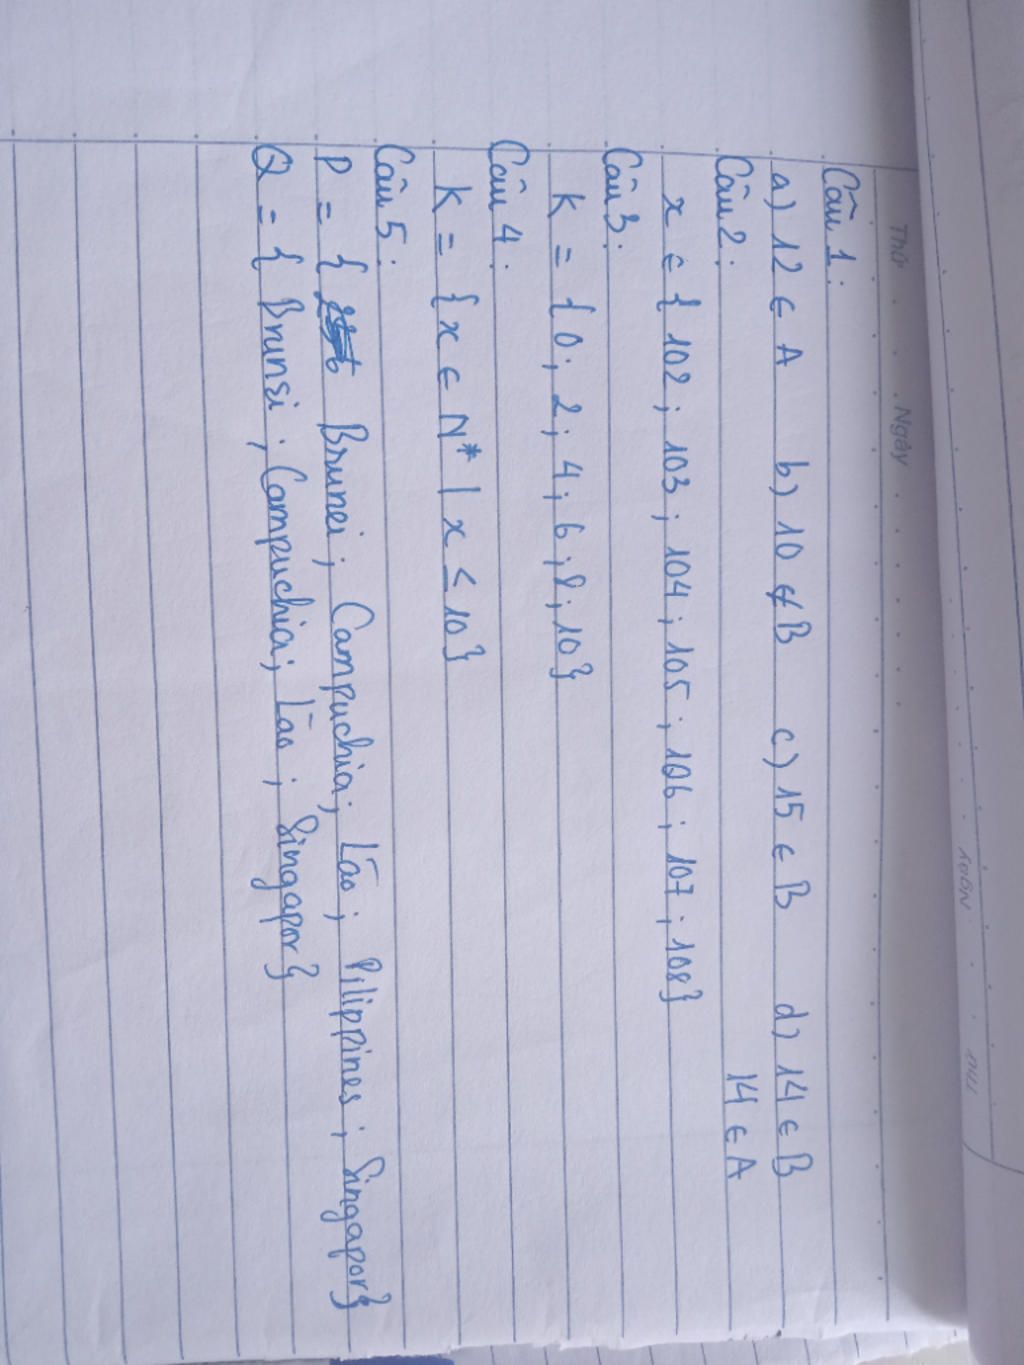 Thứ . . . Ngày . . . . .
Câu 1:
a) 12 ∈ A b) 10 ∉ B c) 15 ∈ B d) 14 ∈ B
14 ∈ A
Câu 2:
x ∈ { 102 ; 103 ; 104 ; 105 ; 106 ; 107 ; 108}
Câu 3:
K = { 0 ; 2 ; 4 ; 6 ; 8 ; 10}
Câu 4:
K = {x ∈ N* | x ≤ 10}
Câu 5:
P = { Brunei ; Campuchia ; Lào ; Pilippines ; Singapor}
Q = { Brunei ; Campuchia ; Lào ; Singapor}